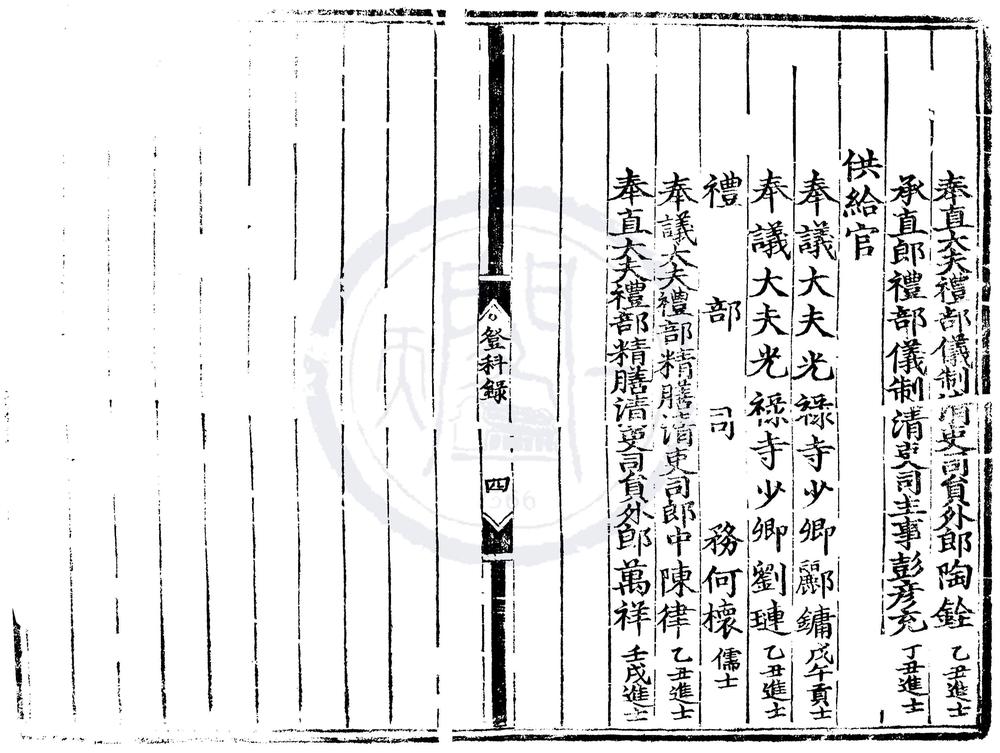 奉直大夫禮部儀制清吏司員外郎陶銓 乙丑進士
承直郎禮部儀制清吏司主事彭彥充 丁丑進士
供給官
奉議大夫光祿寺少卿酈鏞 戊午貢士
奉議大夫光祿寺少卿劉璉 乙丑進士
禮部司務何櫰 儒士
奉議大夫禮部精膳清吏司郎中陳律 乙丑進士
奉直大夫禮部精膳清吏司員外郎萬祥 壬戌進士
登科錄
四